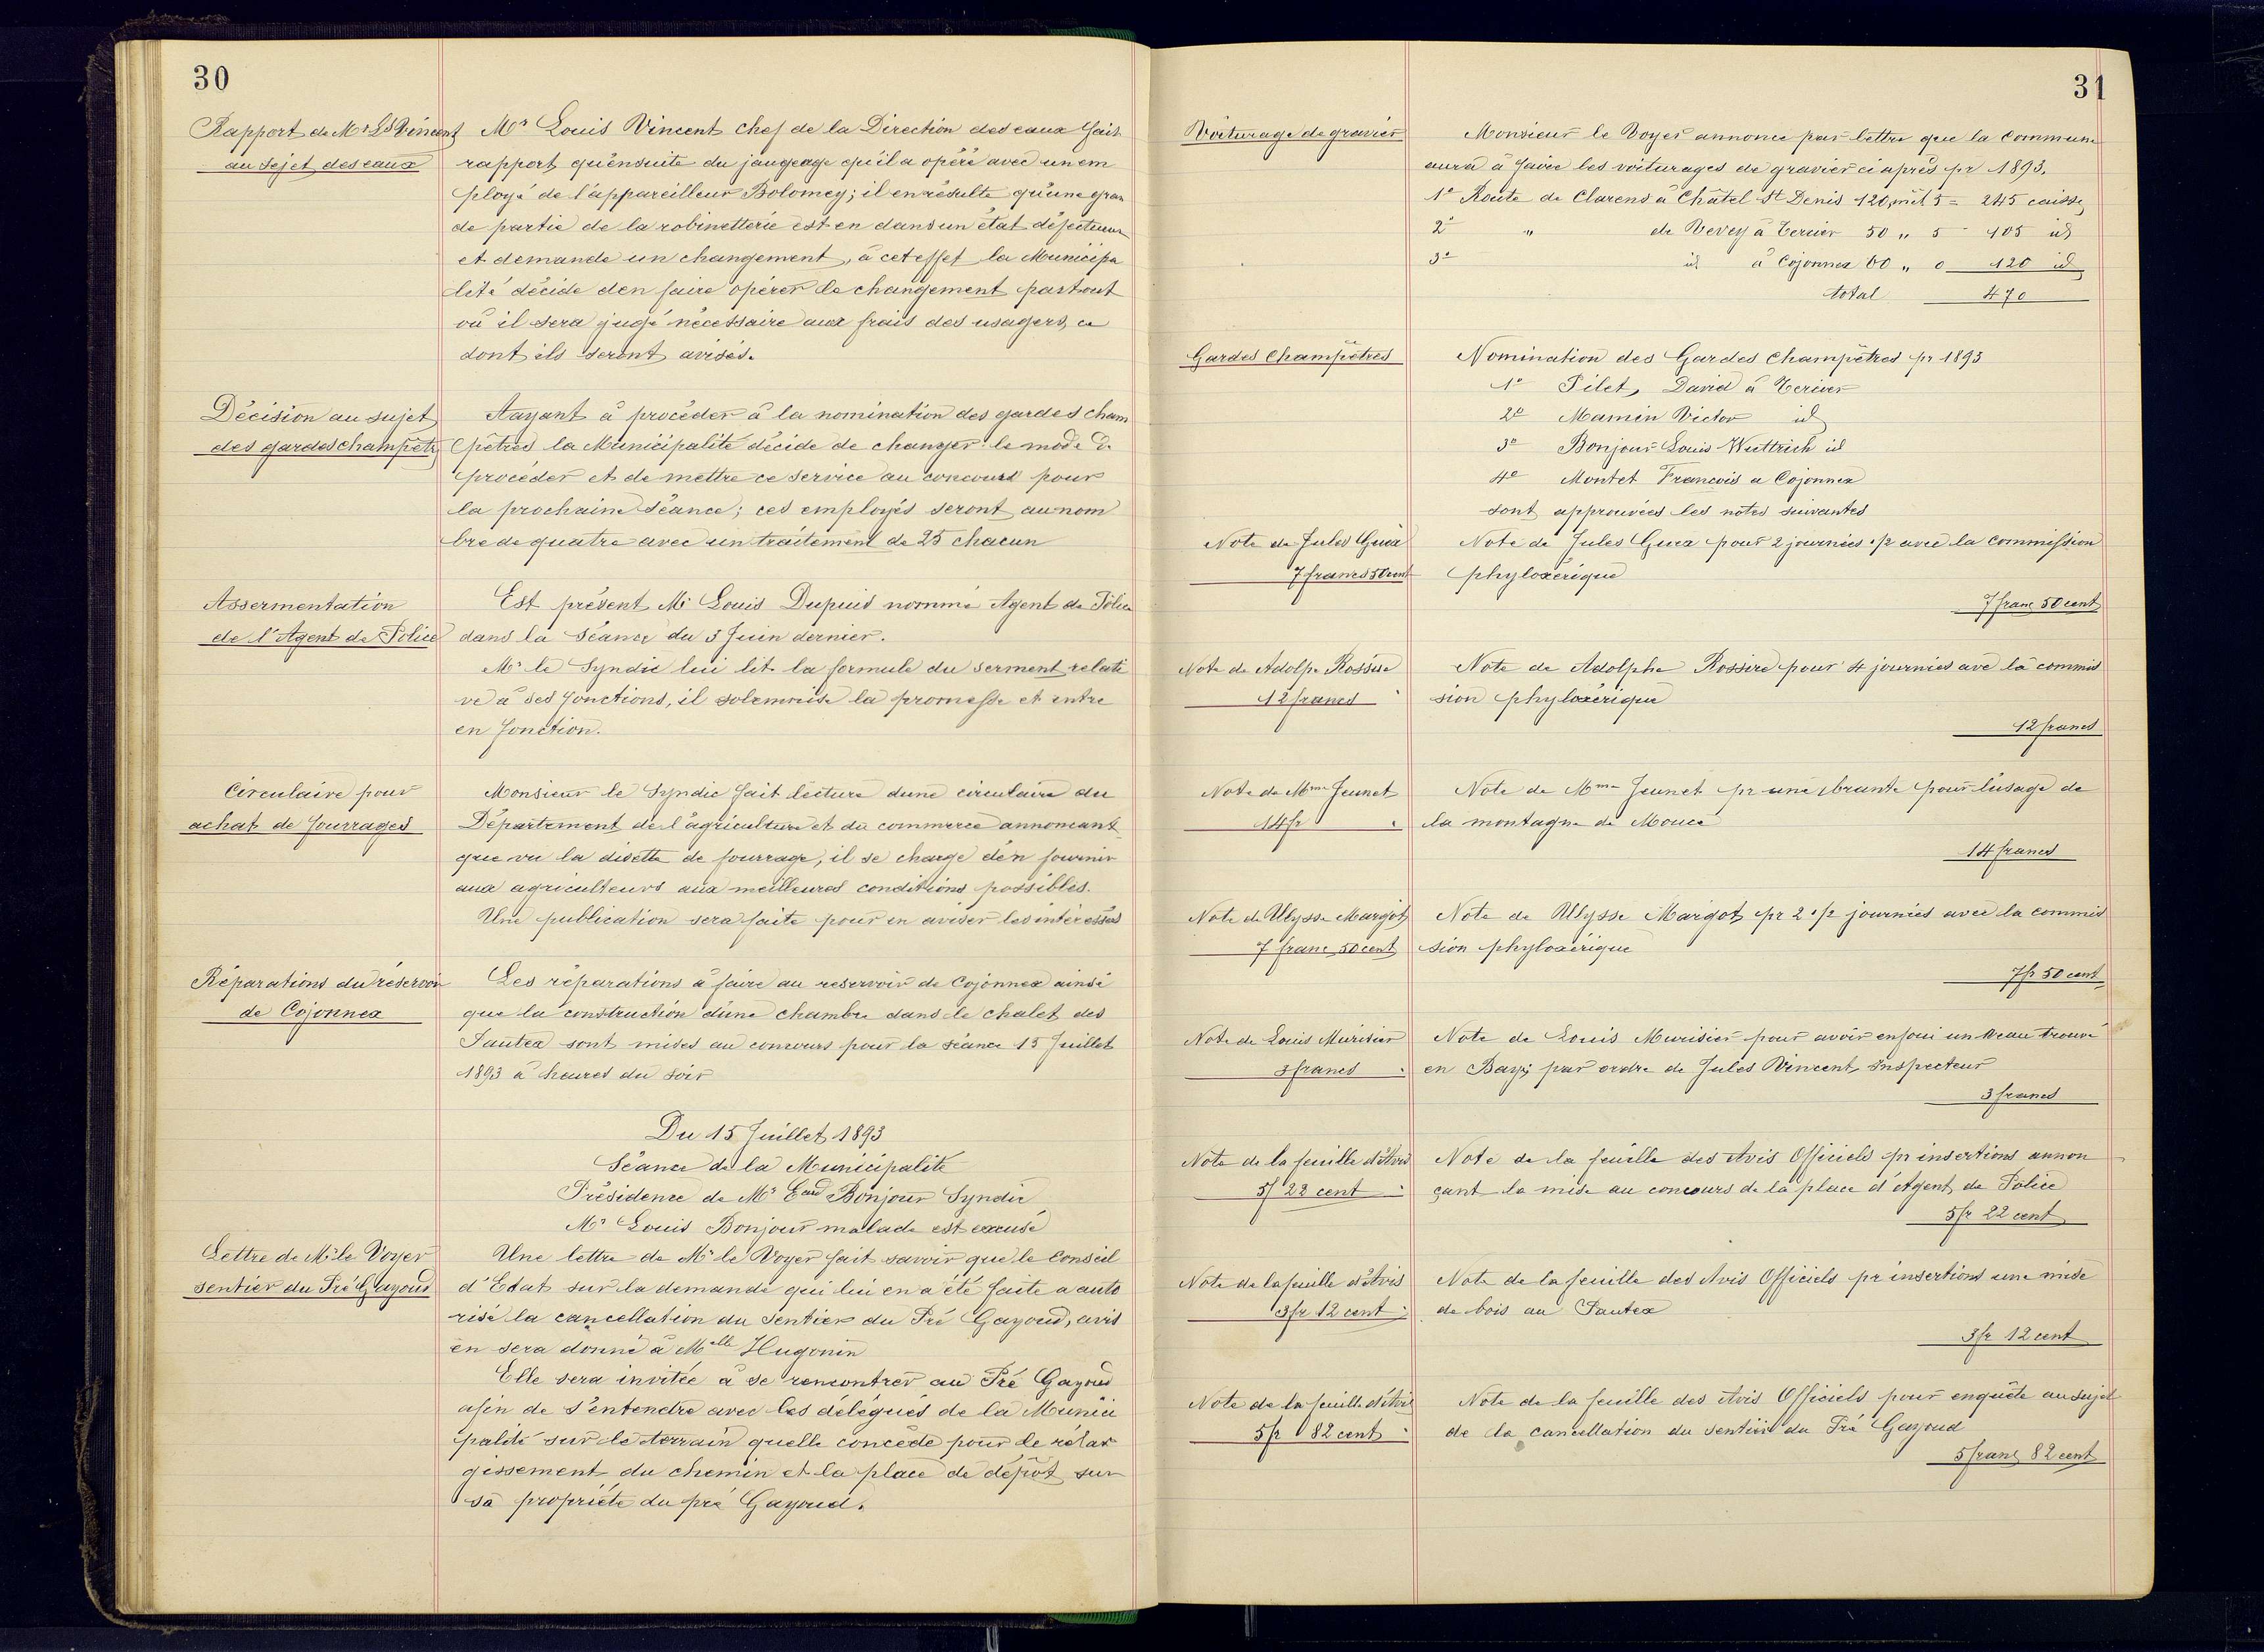 30
Rapport de Mr Ls Vincent
au sejet des eaux
Mr Louis Vincent chef de la Direction des eaux fait
rapport qu'ensuite du jaugeage qu'il a opéré avec un em
ployé de l'appareilleur Bolomey; il en résulte qu'une gran
de partie de la robinetterie est en dans un état défectueux
et demande un changement, à cet effet la Municipa
lité décide d'en faire opérer le changement partout
où il sera jugé nécessaire aux frais des usagers, ce
dont ils seront avisés.
Décision au sujet
des gardes champêtr
Aayant à procéder à la nomination des gardes cham
pêtres la Municipalité décide de changer le mode de
procéder et de mettre ce service au concours pour
la prochaine séance; ces employés seront au nom
bre de quatre avec un traitement de 25 chacun
Assermentation
de l'Agent de Police
Est présent Mr Louis Dupuis nommé Agent de Police
dans la séance du 3 Juin dernier.
Mr le Syndic lui lit la formule du serment relati
ve à ses fonctions, il solemnise la promesse et entre
en fonction.
Circulaire pour
achat de fourrages
Monsieur le Syndic fait lecture d'une circulaire du
Département de l'agriculture et du commerce annoncant
que vu la disette de fourrage, il se charge d'en fournir
aux agriculteurs aux meilleures conditions possibles.
Une publication sera faite pour en aviser les intéressés
Réparations du réservoir
de Cojonnex
Les réparations à faire au reservoir de Cojonnex ainsi
que la construction d'une chambre dans le chalet des
Pautex sont mises au concours pour la séance 15 Juillet
1893 à heures du soir
Du 15 Juillet 1893
Séance de la Municipalité
Présidence de Mr Eaud Bonjour Syndic
Mr Louis Bonjour malade est excusé
Lettre de Mr le Voyer
sentier du Pré Gayoud
Une lettre de Mr le Voyer fait savoir que le Conseil
d'Etat sur la demande qui lui en a été faite a auto
risé la cancellation du sentier du Pré Gayoud, avis
en sera donné à Melle Hugonin
Elle sera invitée à se rencontrer au Pré Gayoud
afin de s'entendre avec les délégués de la Munici
palité sur le terrain quelle concède pour le rélar
gissement du chemin et la place de dépôt sur
sa propriété du pré Gayoud.
31
Voiturage de gravier
Monsieur le Voyer annonce par lettre que la commune
aura à faire les voiturages de gravier ci après pr 1893.
1o Route de Clarens à Châtel St Denis 120 mèt 5 = 245 caisse
2o " de Vevey à Cerier 50 " 5 - 105 id
3o id à Cojonnex 60 " 0 120 id
total 470
Gardes Champêtres
Nomination des Gardes Champêtres pr 1893
1o Pilet, David à Cerier
2o Mamin Victor id
3o Bonjour Louis Wuttrich id
4o Montet Francois a Cojonnex
sont approuvées les notes suivantes
Note de Jules Guex
7 francs 50 cent
Note de Jules Guex pour 2 journées 1/2 avec la commission
phyloxérique
7 franc 50 cent
Note de Adolp. Rossire
12 francs
Note de Adolphe Rossire pour 4 journées ave la commis
sion phyloxérique
12 francs
Note de Mme Jeunet
14 fr
Note de Mme Jeunet pr une brante pour l'usage de
la montagne de Moucé
14 francs
Note de Ulysse Margot
7 franc 50 cent
Note de Ulysse Margot pr 2 1/2 journées avec la commis
sion phyloxérique
7 fr 50 cent
Note de Louis Murisier
3 francs
Note de Louis Murisier pour avoir enfoui un veau trouvé
en Baye par ordre de Jules Vincent, inspecteur
3 francs
Note de la feuille d'Avis
5f 22 cent
Note de la feuille des Avis Officiels pr insertions annon
çant la mise au concours de la place d'Agent de Police
5 fr 22 cent
Note de la feuille d'Avis
3 fr 12 cent
Note de la feuille des Avis Officiels pr insertions une mise
de bois au Pautex
3 fr 12 cent
Note de la feuille d'Avis
5 fr 82 cent
Note de la feuille des Avis Officiels pour enquête au sujet
de la cancellation du sentier du Pré Gayoud
5 franc 82 cent